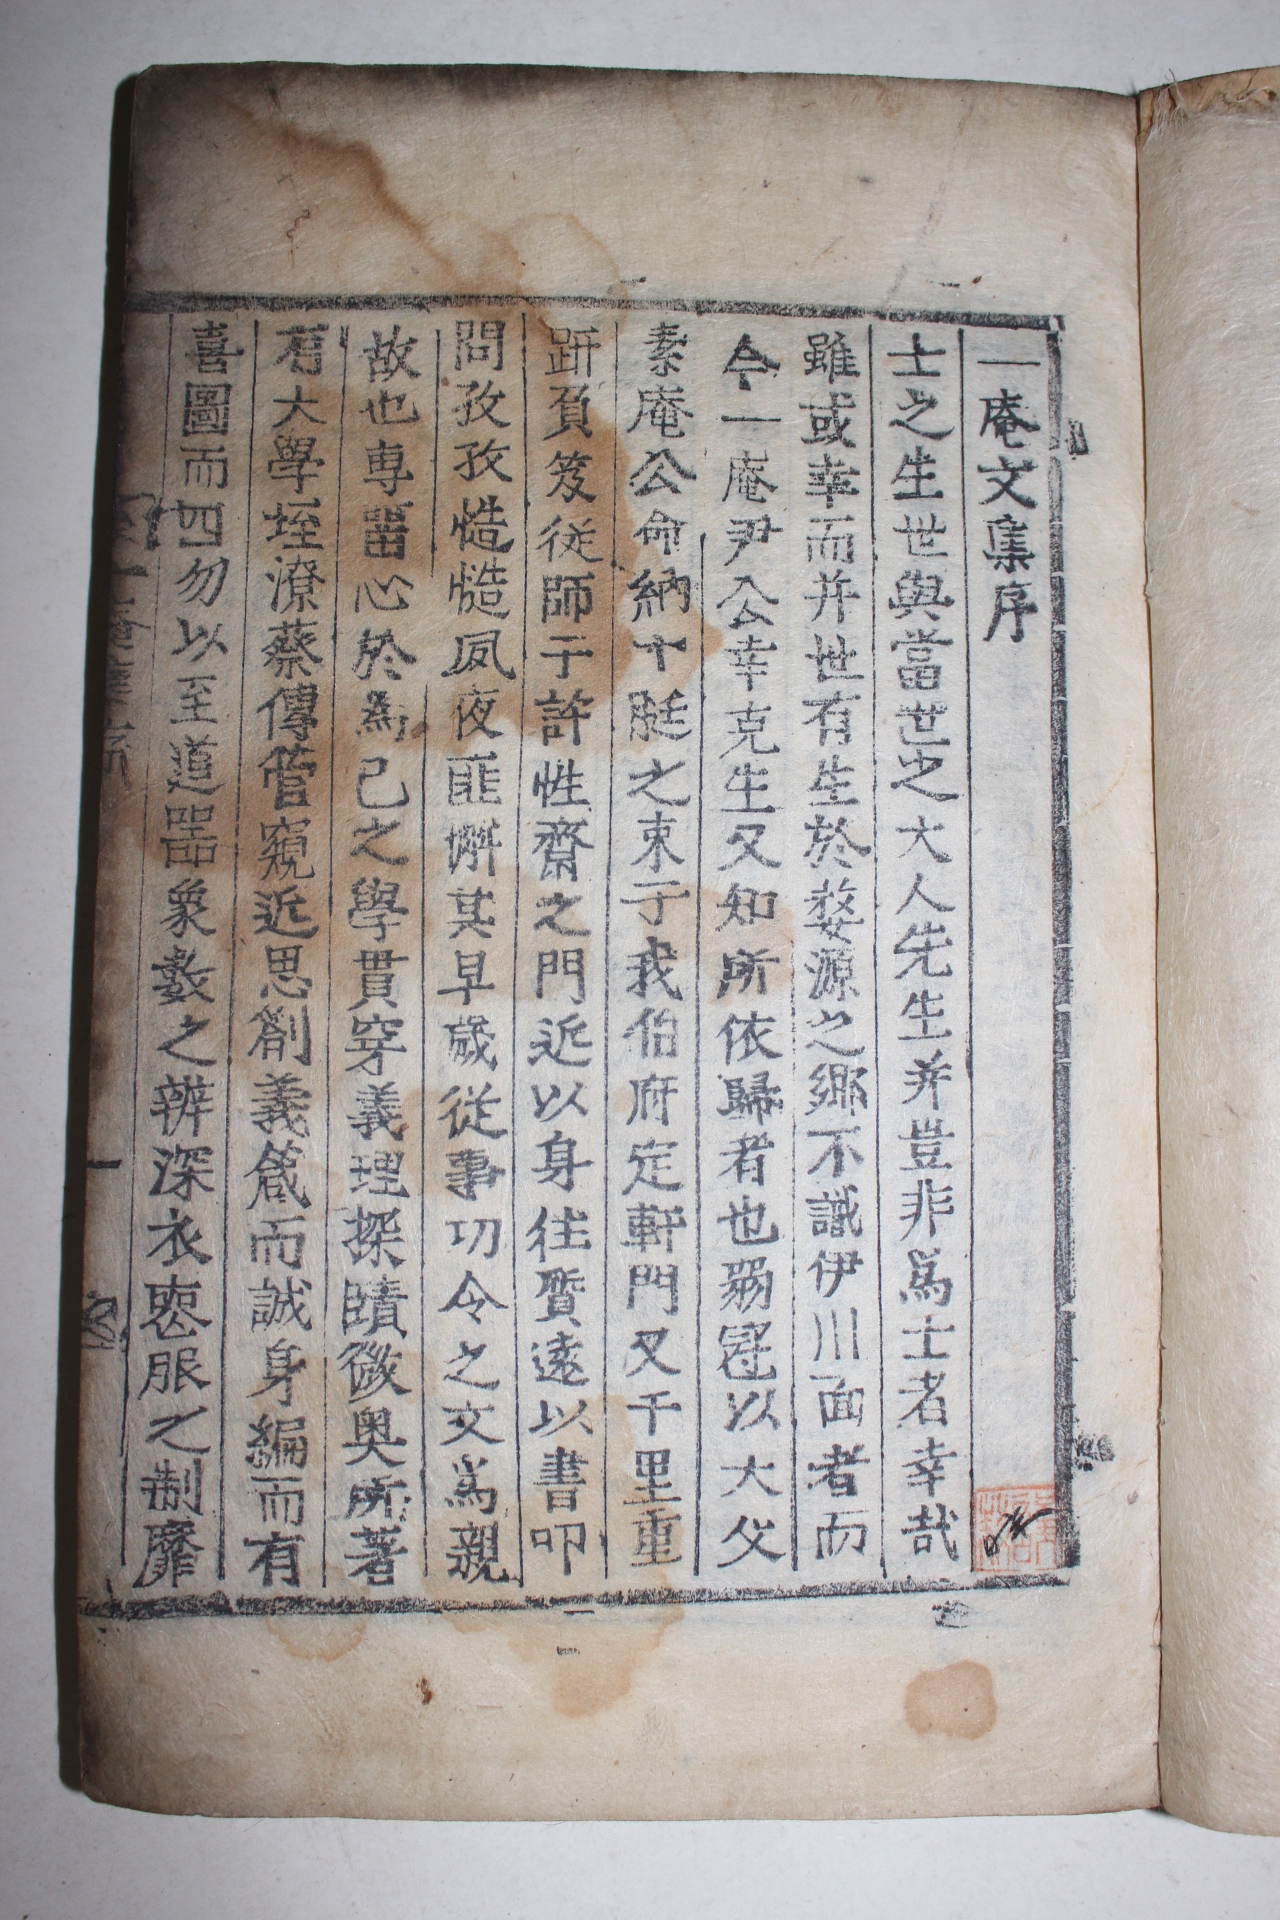 一庵文集序
士之生世與當世之大人先生并豈非爲士者幸哉
雖或幸而并世有生於婺源之鄉不識伊川面者而
今一庵尹公幸克生又知所依歸者也弱冠以大父
素庵公命納十脡之束于我伯府定軒門又千里重
趼負笈從師于許性齋之門近以身往質遠以書叩
問孜孜慥慥夙夜匪懈其早歲從事功令之文爲親
故也專留心於爲己之學貫穿義理探賾微奧所著
有大學垤潦蔡傳管窺近思箚義箴而誠身編而有
喜圖而四勿以至道器象數之辨深衣喪服之制靡